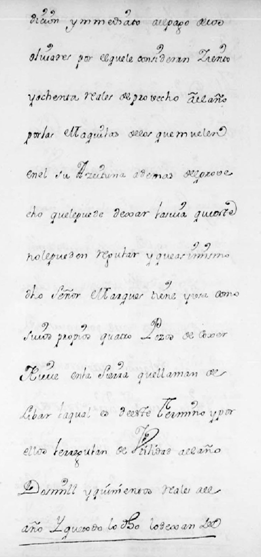 dizion ymmediato al pago de los
olivares por el quele consideran Ziento
yochenta reales de provecho al año
por las Maquilas de los que muelen
en el su Azeituna ademas del prove
cho quele puede dexar la suia que esto
no le pueden regular y que asimismo
dho Señor Marques tiene y usa como
suios propios quatro Pozos de coxer
Nieve en la Sierra que llaman de
la qual es de este Termino y por
ellos le regulan de Utilidad al año
Dos mill y quinientos reales al
año Y que todo lo dho lo dexan